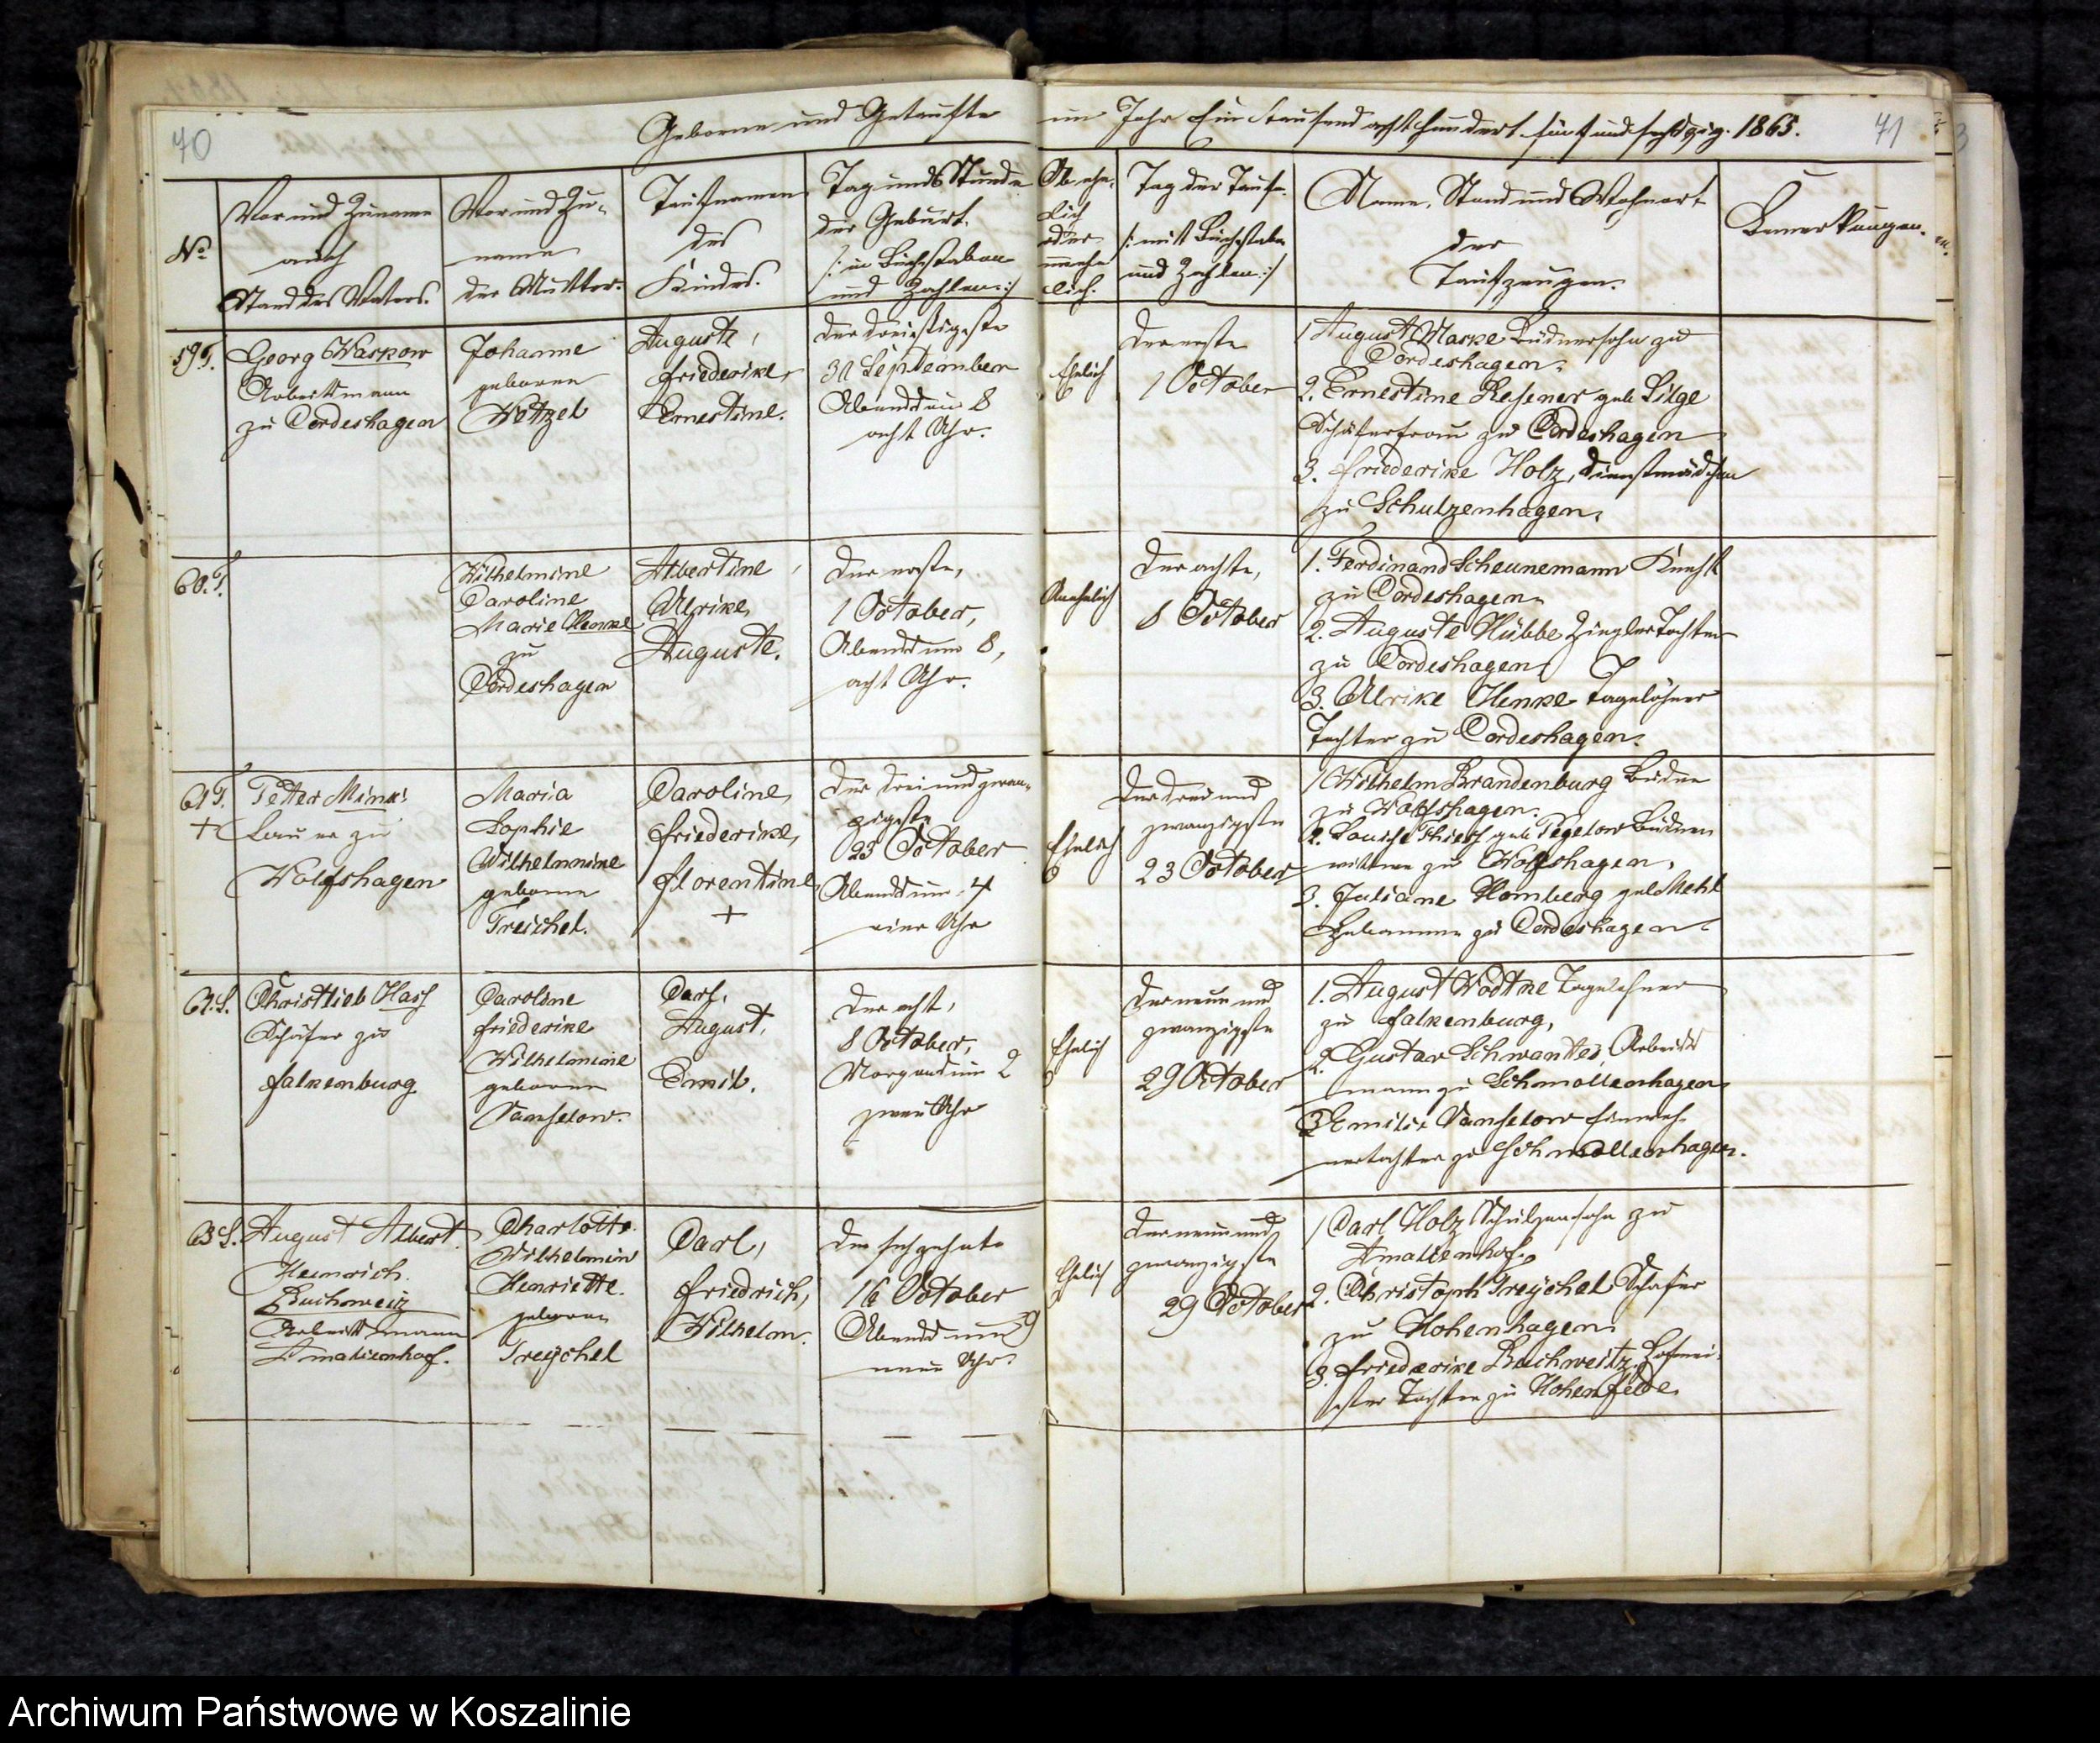 70
Geborne und Getaufte im Jahr Ein tausend acht hundert fünf und sechszig. 1865.
71
No
Vor und Zuname
auch
Stand des Vaters.
Vor und Zu-
name
der Mutter.
Taufnamen
des
Kindes.
Tag und Stunde
der Geburt.
/: in Buchstaben
und Zahlen :/
Ob ehe-
lich
oder
unehe
lich.
Tag der Taufe.
/: mit Buchstaben
und Zahlen :/
Name, Stand und Wohnort
der
Taufzeugen.
Bemerkungen.
59. T.
Georg Waskow
Arbeitsmann
zu Cordeshagen
Johanne
geborne
Wetzel
Auguste,
Friederike,
Ernestine.
Der dreißigste
30 September
Abends um 8
acht Uhr.
Ehelich
Der erste
1 October
1 August Maske Büdnersohn zu
Cordeshagen.
2. Ernestine Resener geb. Bilge
Schäferfrau zu Cordeshagen
3. Friederike Holz, Dienstmädchen
zu Schulzenhagen.
60. T.
Wilhelmine
Caroline
Marie Henke
zu
Cordeshagen
Albertine,
Ulrike,
Auguste.
Der erste,
1 October,
Abends um 8,
acht Uhr.
Unehelich
Der achte,
8 October
1. Ferdinand Scheunemann Knecht
zu Cordeshagen
2. Auguste Hübbe Ziegler Tochter
zu Cordeshagen
3. Ulrike Henke Tagelöhner
Tochter zu Cordeshagen.
61 T.
+
Peter Mink
Bauer zu
Wolfshagen
Maria
Sophie
Wilhelmine
geborne
Treichel.
Caroline,
Friederike,
Florentine
+
Der drei und zwan-
zigste
23 October
Abends um 4
vier Uhr
Ehelich
Der drei und
zwanzigste
23 October
1 Wilhelm Brandenburg Büdner
zu Wolfshagen.
2. Louise geb. Pegelow Büdner
wittwe zu Wolfshagen,
3. Juliane Homberg geb. Mehl
Hebamme zu Cordeshagen
62. S.
Christlieb Hass
Schäfer zu
Falkenburg
Caroline
Friederike
Wilhelmine
geborne
Vanselow.
Carl,
August,
Emil.
Der acht,
8 October,
Morgends um 2
zwei Uhr
Ehelich
Der neun und
zwanzigste
29 October
1. August Wodtke Tagelöhner
zu Falkenburg,
2. Gustav Schwantes, Arbeits
mann zu Schmollenhagen
3 Emilie Vanselow Einwoh-
nertochter zu Schmollenhagen.
63 S.
August Albert
Heinrich
Buchweitz
Arbeitsmann
Amalienhof.
Charlotte
Wilhelmine
Henriette.
geborne
Treychel
Carl,
Friedrich,
Wilhelm.
Der sechszehnte
16 October
Abends um 9
neun Uhr.
Ehelich
Der neun und
zwanzigste
29 October
1 Carl Holz Schulzensohn zu
Amalienhof.
2. Christoph Treychel Schäfer
zu Hohenhagen
3. Friederike Buchweitz, Hofmei-
ster Tochter zu Hohenfelde.
Archiwum Państwowe w Koszalinie